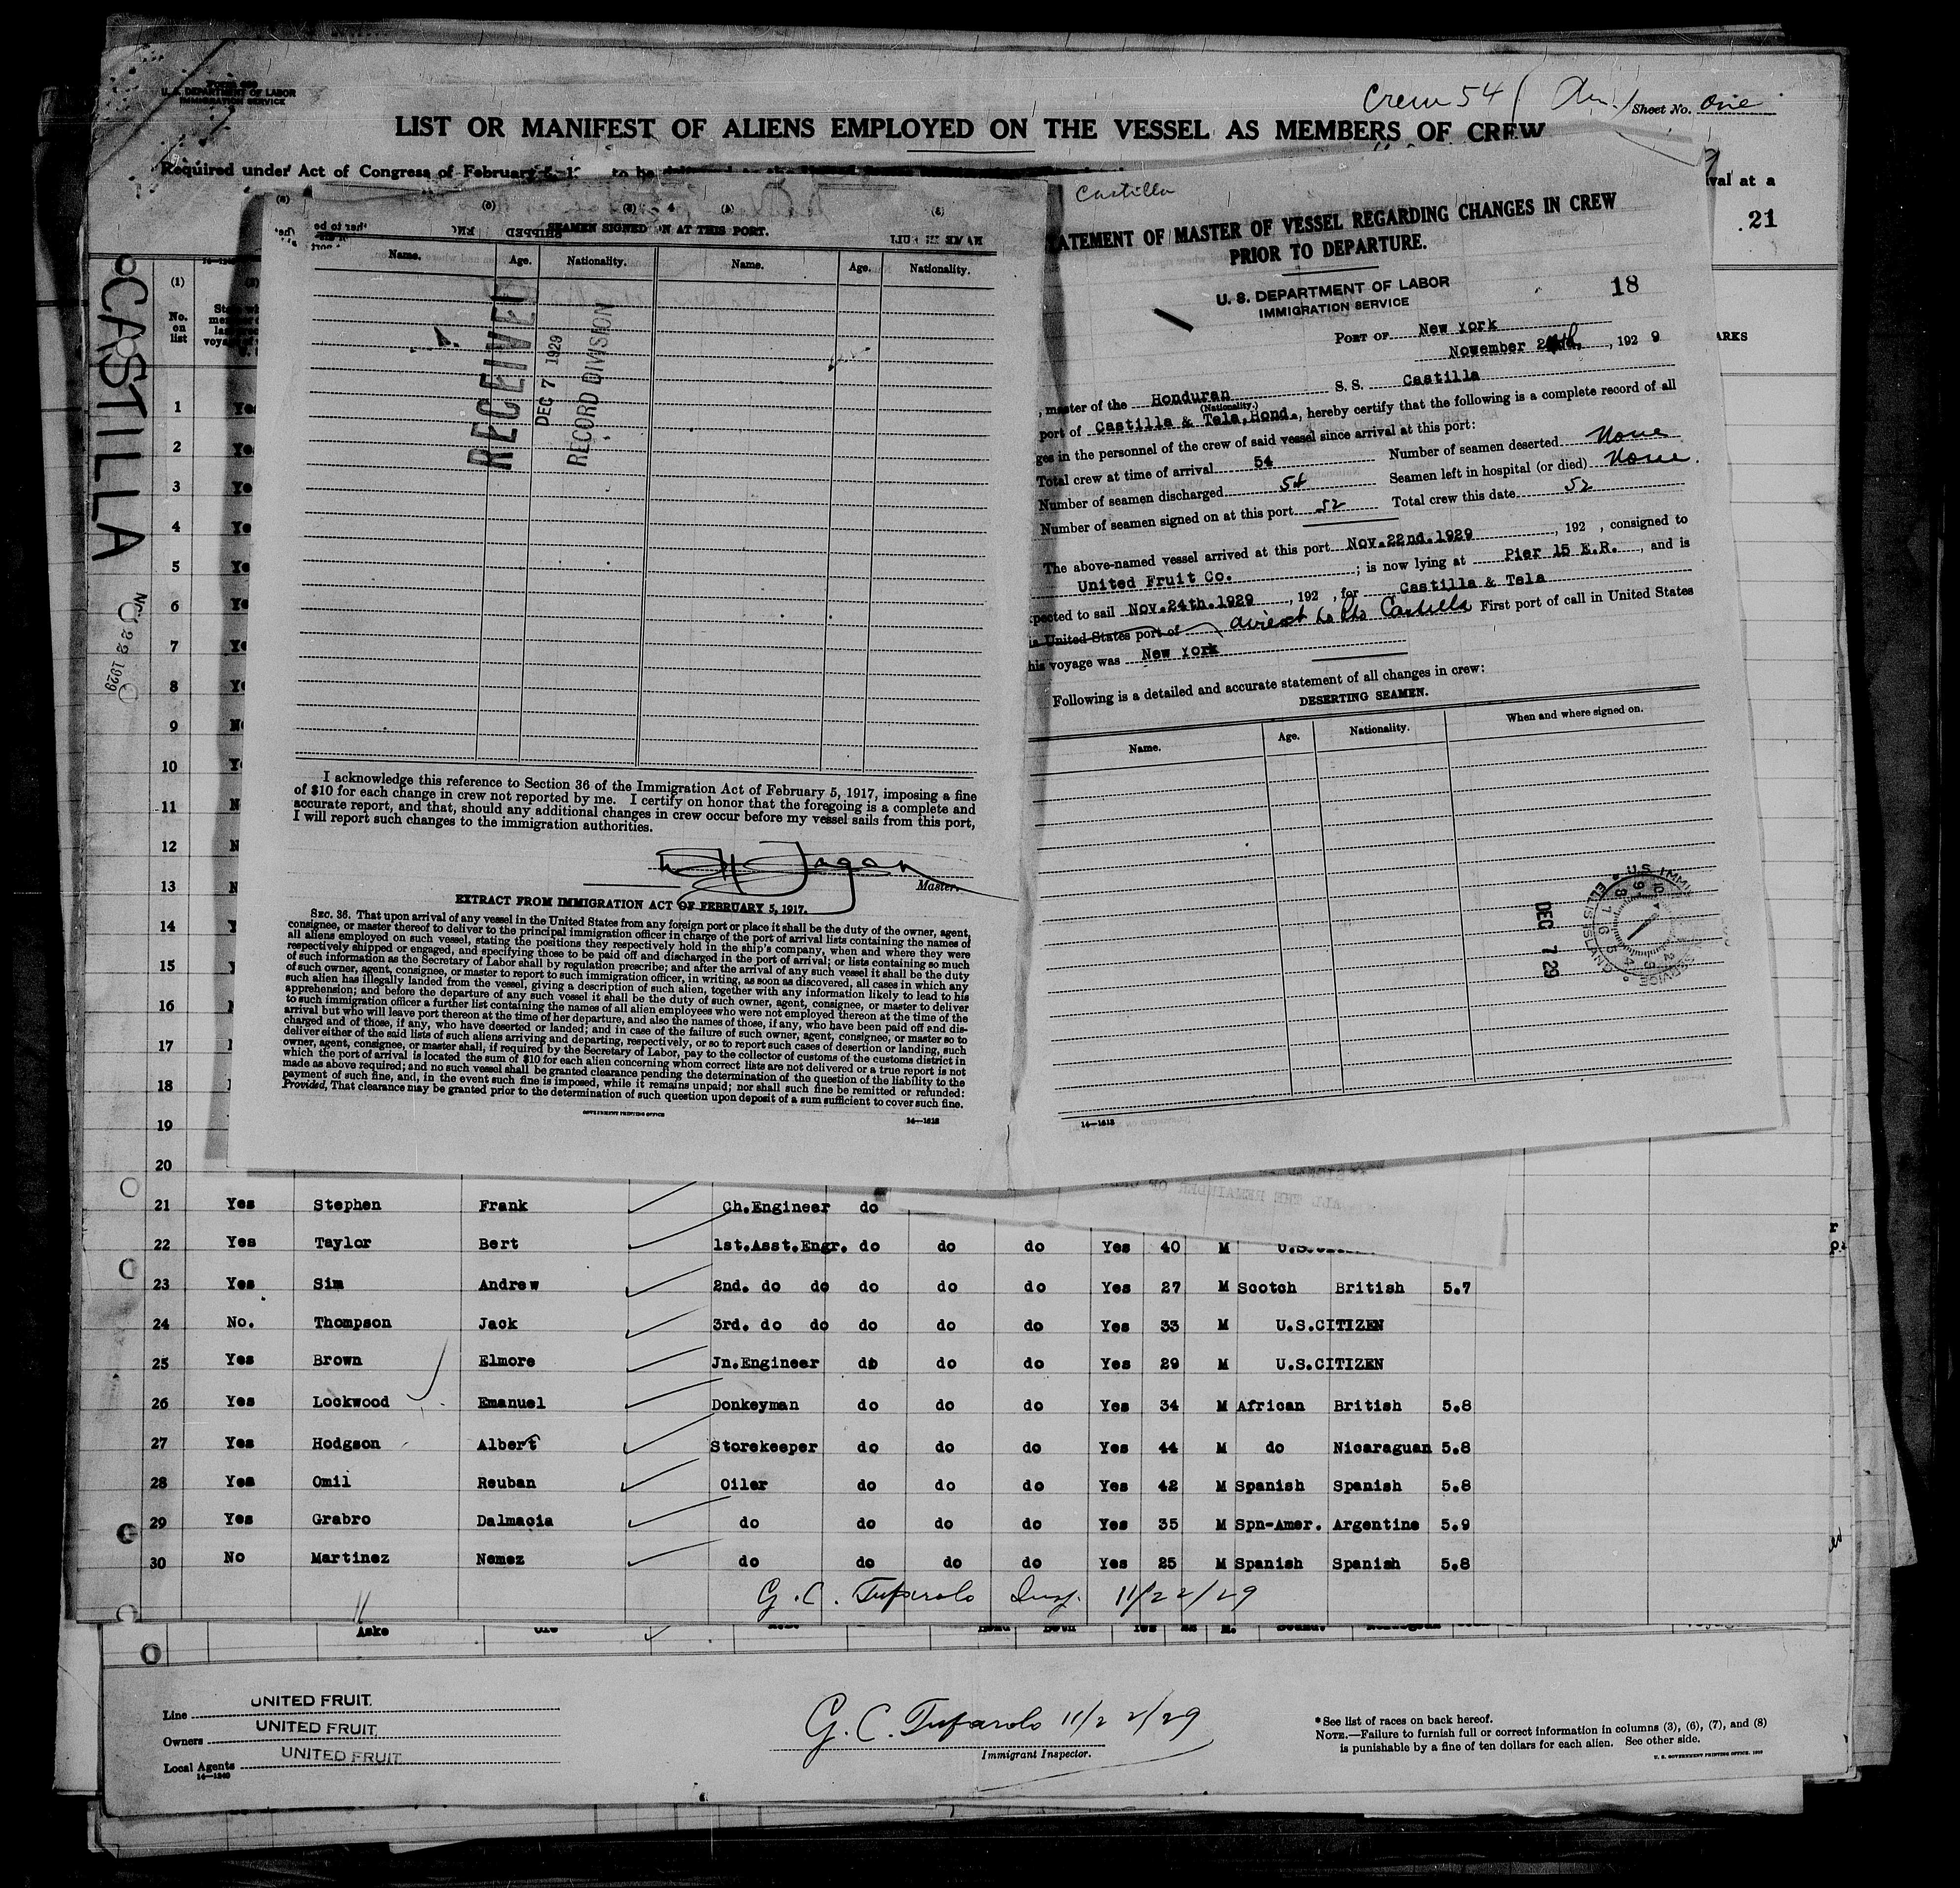 U. S. DEPARTMENT OF LABOR
IMMIGRATION SERVICE
Crew 54
Sheet No. One
LIST OR MANIFEST OF ALIENS EMPLOYED ON THE VESSEL AS MEMBERS OF CREW
Required under Act of Congress of February
to be
val at a
21
CASTILLA
NOV 22 1929
(1)
No.
on
list
ARKS
1
2
3
4
5
6
7
8
9
10
11
12
13
14
15
16
17
18
19
20
SEAMEN SIGNED ON AT THIS PORT.
Name. Age. Nationality. Name. Age. Nationality.
RECEIVED
DEC 7 1929
RECORD DIVISION
I acknowledge this reference to Section 36 of the Immigration Act of February 5, 1917, imposing a fine
of $10 for each change in crew not reported by me. I certify on honor that the foregoing is a complete and
accurate report, and that, should any additional changes in crew occur before my vessel sails from this port,
I will report such changes to the immigration authorities.
Master.
EXTRACT FROM IMMIGRATION ACT OF FEBRUARY 5, 1917.
SEC. 36. That upon arrival of any vessel in the United States from any foreign port or place it shall be the duty of the owner, agent,
consignee, or master thereof to deliver to the principal immigration officer in charge of the port of arrival lists containing the names of
all aliens employed on such vessel, stating the positions they respectively hold in the ship's company, when and where they were
respectively shipped or engaged, and specifying those to be paid off and discharged in the port of arrival; or lists containing so much
of such information as the Secretary of Labor shall by regulation prescribe; and after the arrival of any such vessel it shall be the duty
of such owner, agent, consignee, or master to report to such immigration officer, in writing, as soon as discovered, all cases in which any
such alien has illegally landed from the vessel, giving a description of such alien, together with any information likely to lead to his
apprehension; and before the departure of any such vessel it shall be the duty of such owner, agent, consignee, or master to deliver
to such immigration officer a further list containing the names of all alien employees who were not employed thereon at the time of the
arrival but who will leave port thereon at the time of her departure, and also the names of those, if any, who have been paid off and dis-
charged and of those, if any, who have deserted or landed; and in case of the failure of such owner, agent, consignee, or master so to
deliver either of the said lists of such aliens arriving and departing, respectively, or so to report such cases of desertion or landing, such
owner, agent, consignee, or master shall, if required by the Secretary of Labor, pay to the collector of customs of the customs district in
which the port of arrival is located the sum of $10 for each alien concerning whom correct lists are not delivered or a true report is not
made as above required; and no such vessel shall be granted clearance pending the determination of the question of the liability to the
payment of such fine, and, in the event such fine is imposed, while it remains unpaid; nor shall such fine be remitted or refunded:
Provided, That clearance may be granted prior to the determination of such question upon deposit of a sum sufficient to cover such fine.
GOVERNMENT PRINTING OFFICE
14—1618
Castilla
ATEMENT OF MASTER OF VESSEL REGARDING CHANGES IN CREW
PRIOR TO DEPARTURE.
U. S. DEPARTMENT OF LABOR
IMMIGRATION SERVICE
18
PORT OF New York
November , 192 9
, master of the Honduran S. S. Castilla
(Nationality.)
port of Castilla & Tela, Hond., hereby certify that the following is a complete record of all
ges in the personnel of the crew of said vessel since arrival at this port:
Total crew at time of arrival 54 Number of seamen deserted None
Number of seamen discharged 54 Seamen left in hospital (or died) None.
Number of seamen signed on at this port 52 Total crew this date 52
The above-named vessel arrived at this port Nov.22nd.1929 , 192 , consigned to
United Fruit Co. ; is now lying at Pier 15 E.R. , and is
pected to sail Nov.24th.1929 , 192 , for Castilla & Tela
United States port of direct to Pto Castilla First port of call in United States
his voyage was New York
Following is a detailed and accurate statement of all changes in crew:
DESERTING SEAMEN.
Name. Age. Nationality. When and where signed on.
DEC 7 29
14—1618
21 Yes Stephen Frank Ch.Engineer do
22 Yes Taylor Bert 1st.Asst.Engr. do do do Yes 40 M
23 Yes Sim Andrew 2nd. do do do do do Yes 27 M Scotch British 5.7
24 No. Thompson Jack 3rd. do do do do do Yes 33 M U.S.CITIZEN
25 Yes Brown Elmore Jn.Engineer do do do Yes 29 M U.S.CITIZEN
26 Yes Lockwood Emanuel Donkeyman do do do Yes 34 M African British 5.8
27 Yes Hodgson Albert Storekeeper do do do Yes 44 M do Nicaraguan 5.8
28 Yes Omil Reuban Oiler do do do Yes 42 M Spanish Spanish 5.8
29 Yes Grabro Dalmacia do do do do Yes 35 M Spn-Amer. Argentine 5.9
30 No Martinez Nemez do do do do Yes 25 M Spanish Spanish 5.8
G. C. Tufarolo Insp. 11/22/29
Aske
Line UNITED FRUIT.
Owners UNITED FRUIT.
Local Agents UNITED FRUIT.
14—1240
G. C. Tufarolo 11/22/29
Immigrant Inspector.
* See list of races on back hereof.
NOTE.—Failure to furnish full or correct information in columns (3), (6), (7), and (8)
is punishable by a fine of ten dollars for each alien. See other side.
U. S. GOVERNMENT PRINTING OFFICE